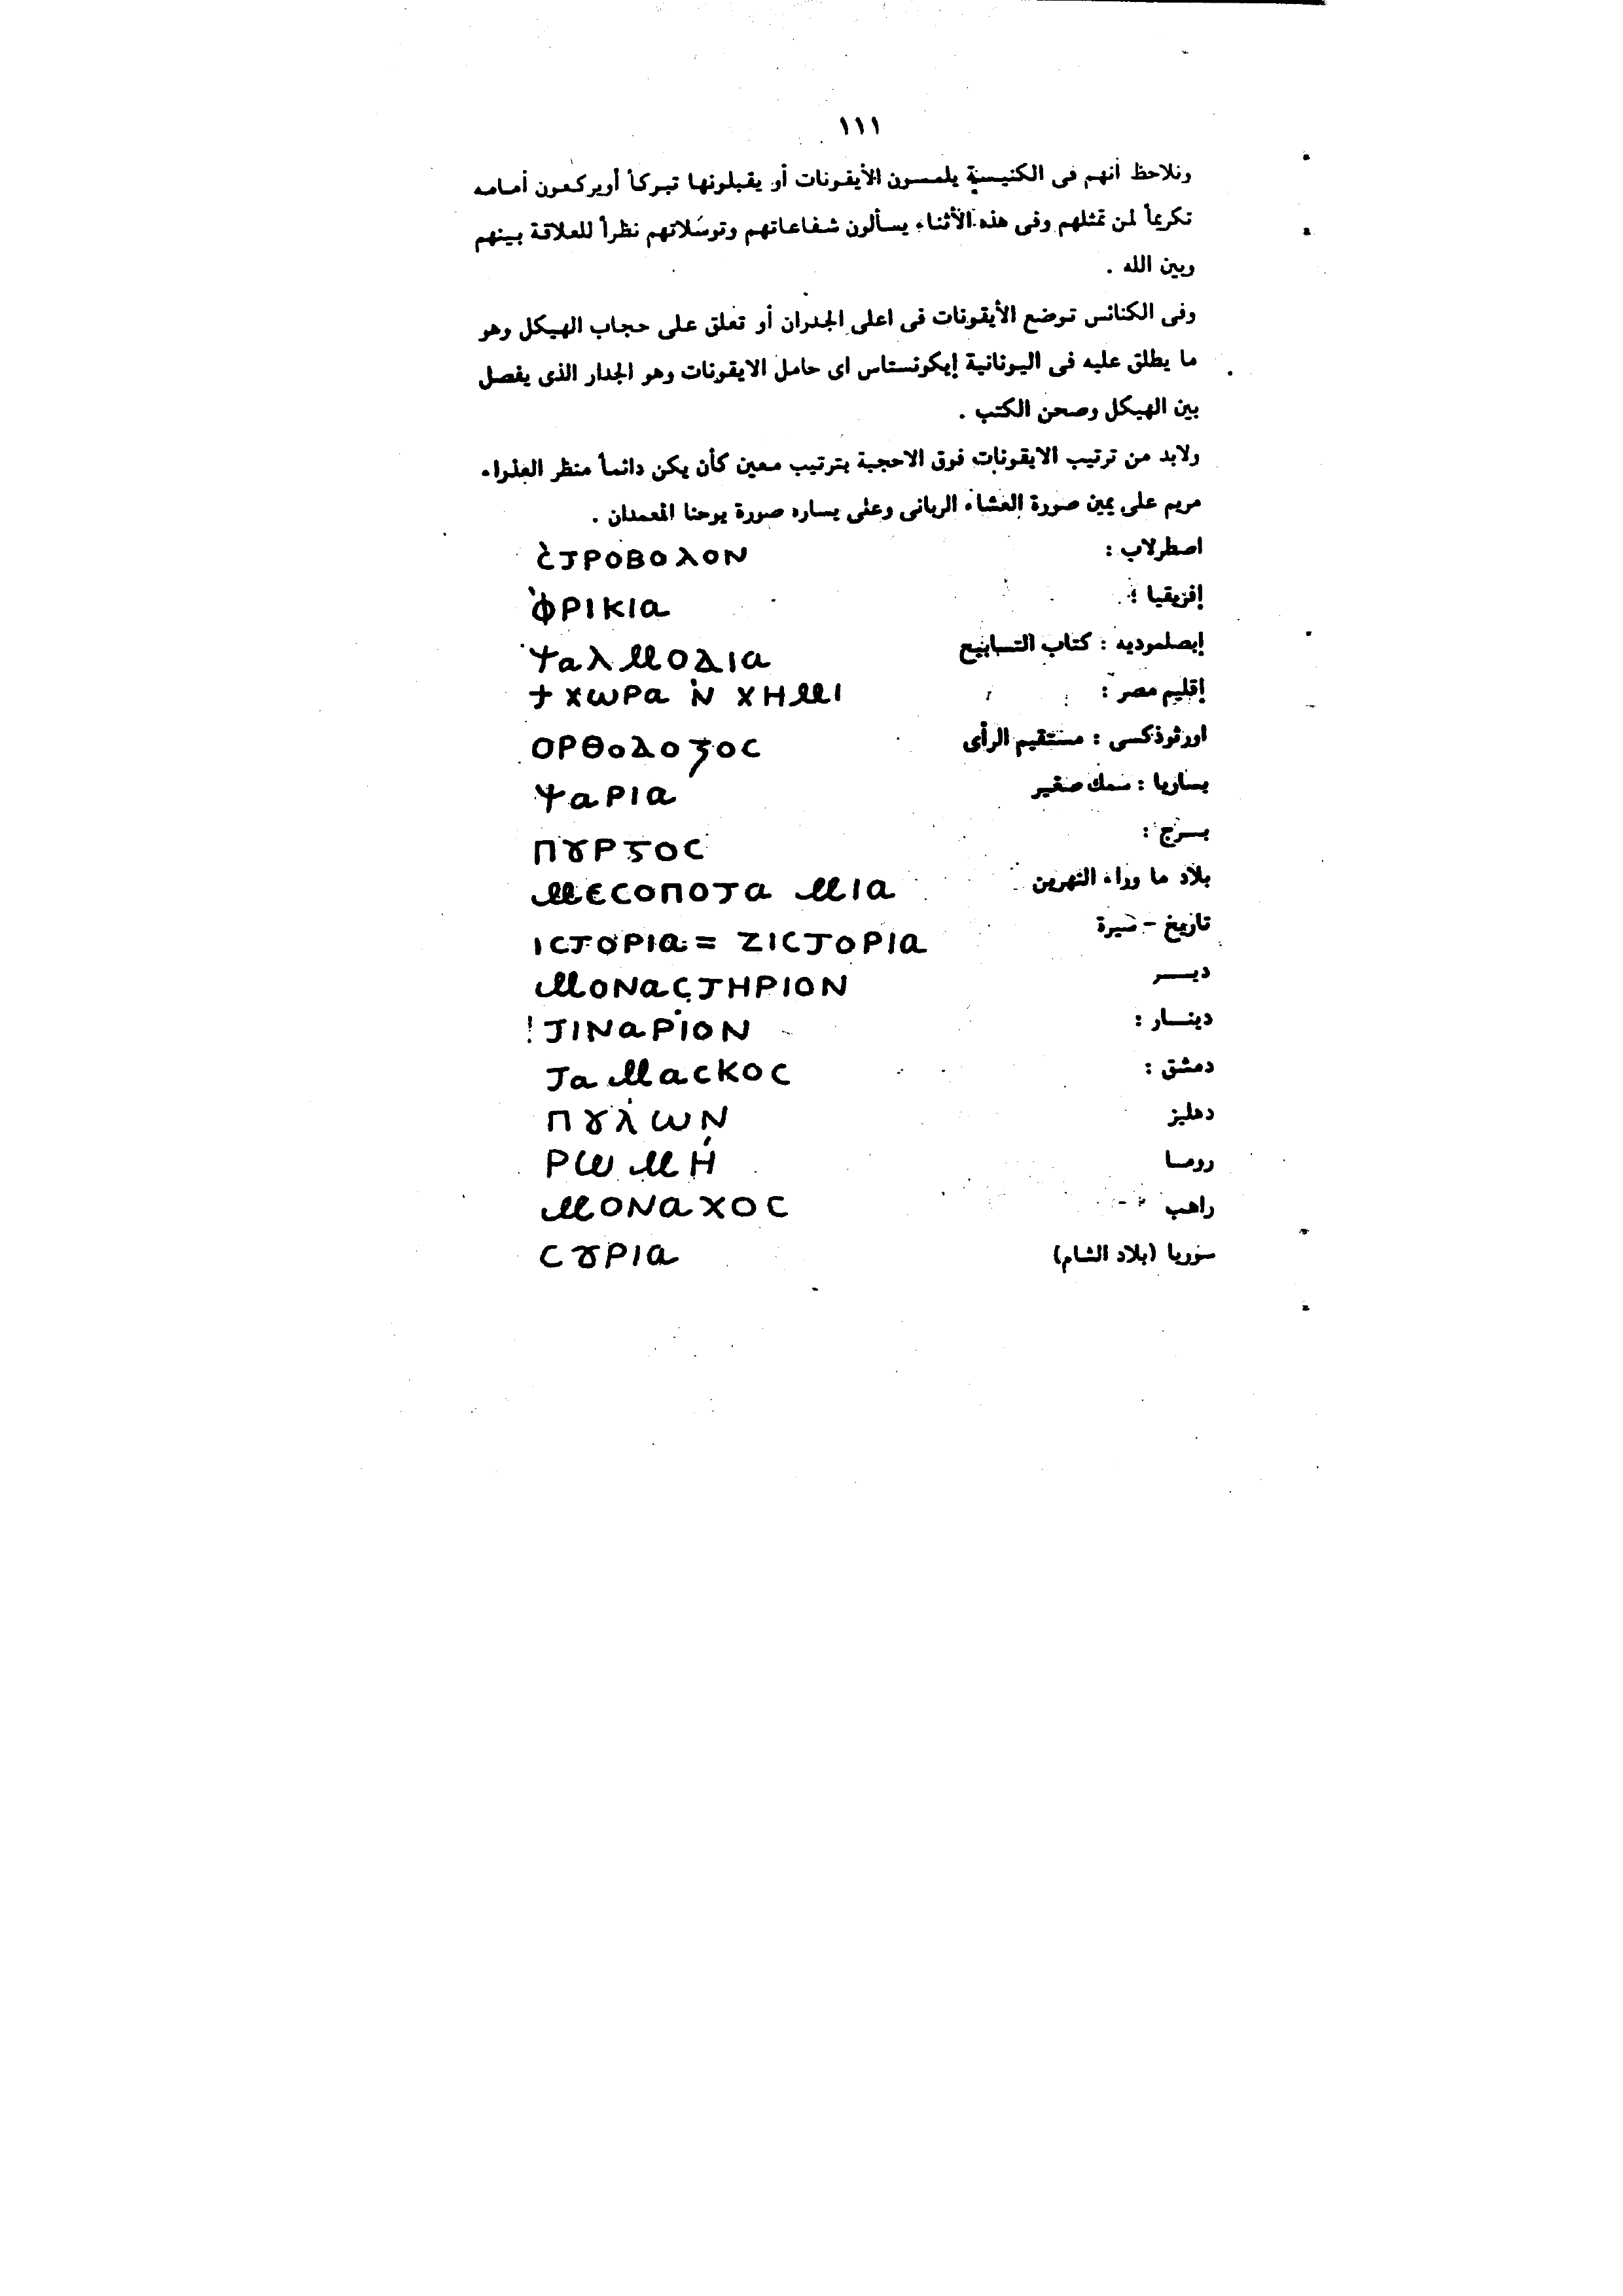 ١١١
ونلاحظ انهم فى الكنيسة يلمسون الأيقونات أو يقبلونها تبركأ أويركعون أمامه
تكريمأ لمن تمثلهم وفى هذه الأثناء يسألون شفاعاتهم وتوسلاتهم نظرأ للعلاقة بينهم
وبين الله .
وفى الكنائس توضع الأيقونات فى اعلى الجدران أو تعلق على حجاب الهيكل وهو
ما يطلق عليه فى اليونانية إيكونستاس اى حامل الايقونات وهو الجدار الذى يفصل
بين الهيكل وصحن الكتب .
ولابد من ترتيب الايقونات فوق الاحجبة بترتيب معين كأن يكن دائمأ منظر العذراء
مريم على يمين صورة العشاء الربانى وعلى يساره صورة يوحنا المعمدان .
اصطرلاب : ⲥ̀ⲧⲣⲟⲃⲟⲗⲟⲛ
إفريقيا : ⲫ̀ⲣⲓⲕⲓⲁ
إبصلموديه : كتاب التسابيح ⲯⲁⲗⲙⲟⲇⲓⲁ
إقليم مصر : ϯ ⲭⲱⲣⲁ ⲛ̀ ⲭⲏⲙⲓ
اورثوذكسى : مستقيم الرأى ⲟⲣⲑⲟⲇⲟⲝⲟⲥ
بساريا : سمك صغير ⲯⲁⲣⲓⲁ
بـرج : ⲡⲩⲣⲅⲟⲥ
بلاد ما وراء النهرين ⲙⲉⲥⲟⲡⲟⲧⲁ ⲙⲓⲁ
تاريخ - سيرة ⲓⲥⲧⲟⲣⲓⲁ = ⲍⲓⲥⲧⲟⲣⲓⲁ
ديـــر ⲙⲟⲛⲁⲥⲧⲏⲣⲓⲟⲛ
دينـــار : ⲧⲓⲛⲁⲣⲓⲟⲛ
دمشق : ⲧⲁ ⲙⲁⲥⲕⲟⲥ
دهليز ⲡⲩⲗⲱⲛ
رومـا ⲣⲱⲙⲏ̀
راهب ⲙⲟⲛⲁⲭⲟⲥ
سوريا (بلاد الشام) ⲥⲩⲣⲓⲁ